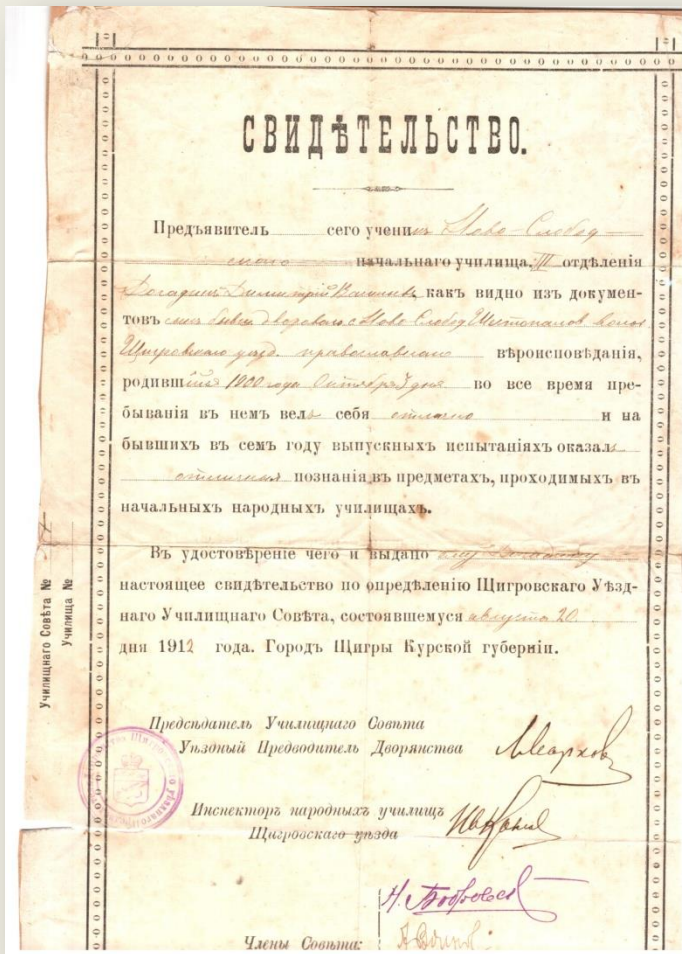 СВИДѢТЕЛЬСТВО.
Предъявитель сего ученикъ Ново-Слобод-
скаго начальнаго училища, III отдѣленія
Димитрій какъ видно изъ докумен-
товъ сынъ Ново Слобод
Щигровскаго уѣзд. православнаго вѣроисповѣданія,
родившійся 1900 года Октября дня во все время пре-
быванія въ немъ велъ себя отлично и на
бывшихъ въ семъ году выпускныхъ испытаніяхъ оказалъ
отличныя познанія въ предметахъ, проходимыхъ въ
начальныхъ народныхъ училищахъ.
Въ удостовѣреніе чего и выдано ему
настоящее свидѣтельство по опредѣленію Щигровскаго Уѣзд-
наго Училищнаго Совѣта, состоявшемуся августа 20
дня 1912 года. Городъ Щигры Курской губерніи.
Училищнаго Совѣта №
Училища №
Предсѣдатель Училищнаго Совѣта
Уѣздный Предводитель Дворянства
Инспекторъ народныхъ училищъ
Щигровскаго уѣзда
Члены Совѣта: